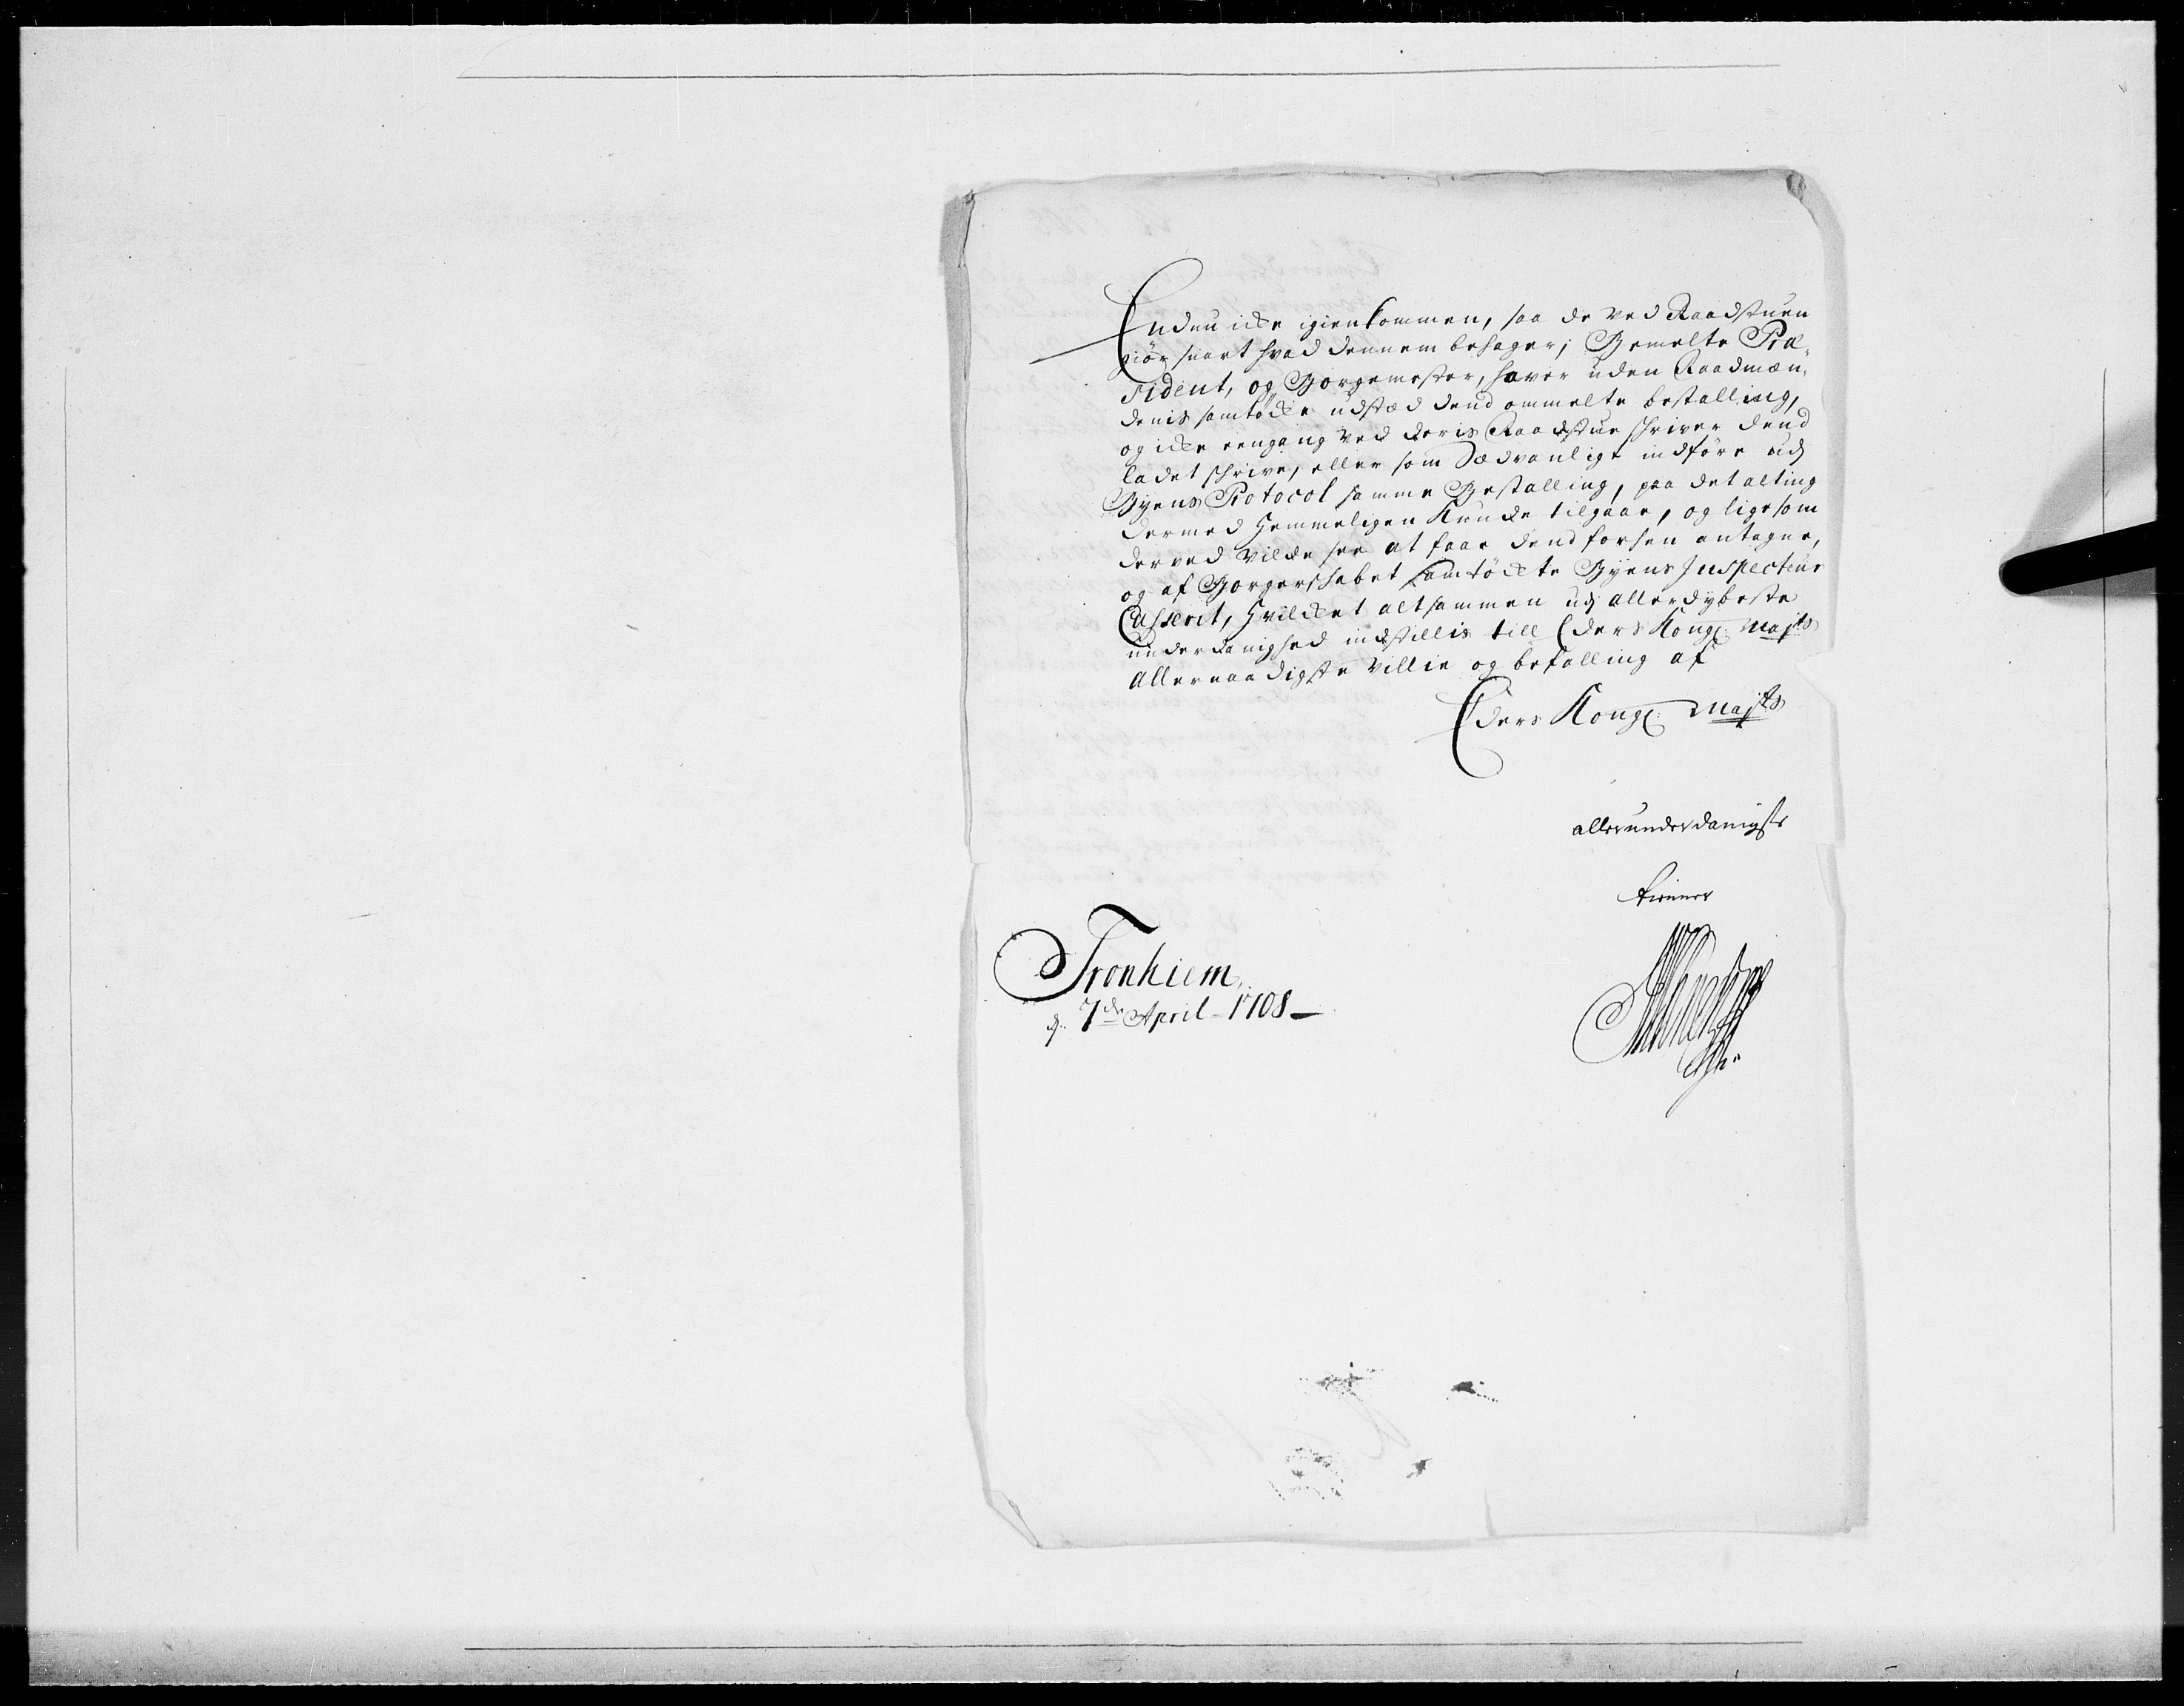 Endnu icke igienkommen, saa de ved Raadstuen
giør snart hvad dennem behager; Bemelte Præ-
sident, og Borgemester, haver uden Raadmæn-
denis samtøcke udstæd dend ommelte bestalling,
og icke eengang ved deris Raadstue skriver dend
ladet skrive, eller som Sædvanligt indføre udj
Byens Protocol samme Bestalling, paa det alting
dermed Hemmeligen kunde tilgaae, og ligesom
derved vilde see at faae dend forhen antagne,
og af Borgerskabet samtøckte Byens Inspecteur
Casserit, Hvilcket altsammen udj allerdybeste
underdanighed indstillis till Eders Kongl: Majts
allernaadigste villie og befalling af
Eders Kongl: Majts
allerunderdanigste
tienner
Tronhiem,
d. 7de April 1708